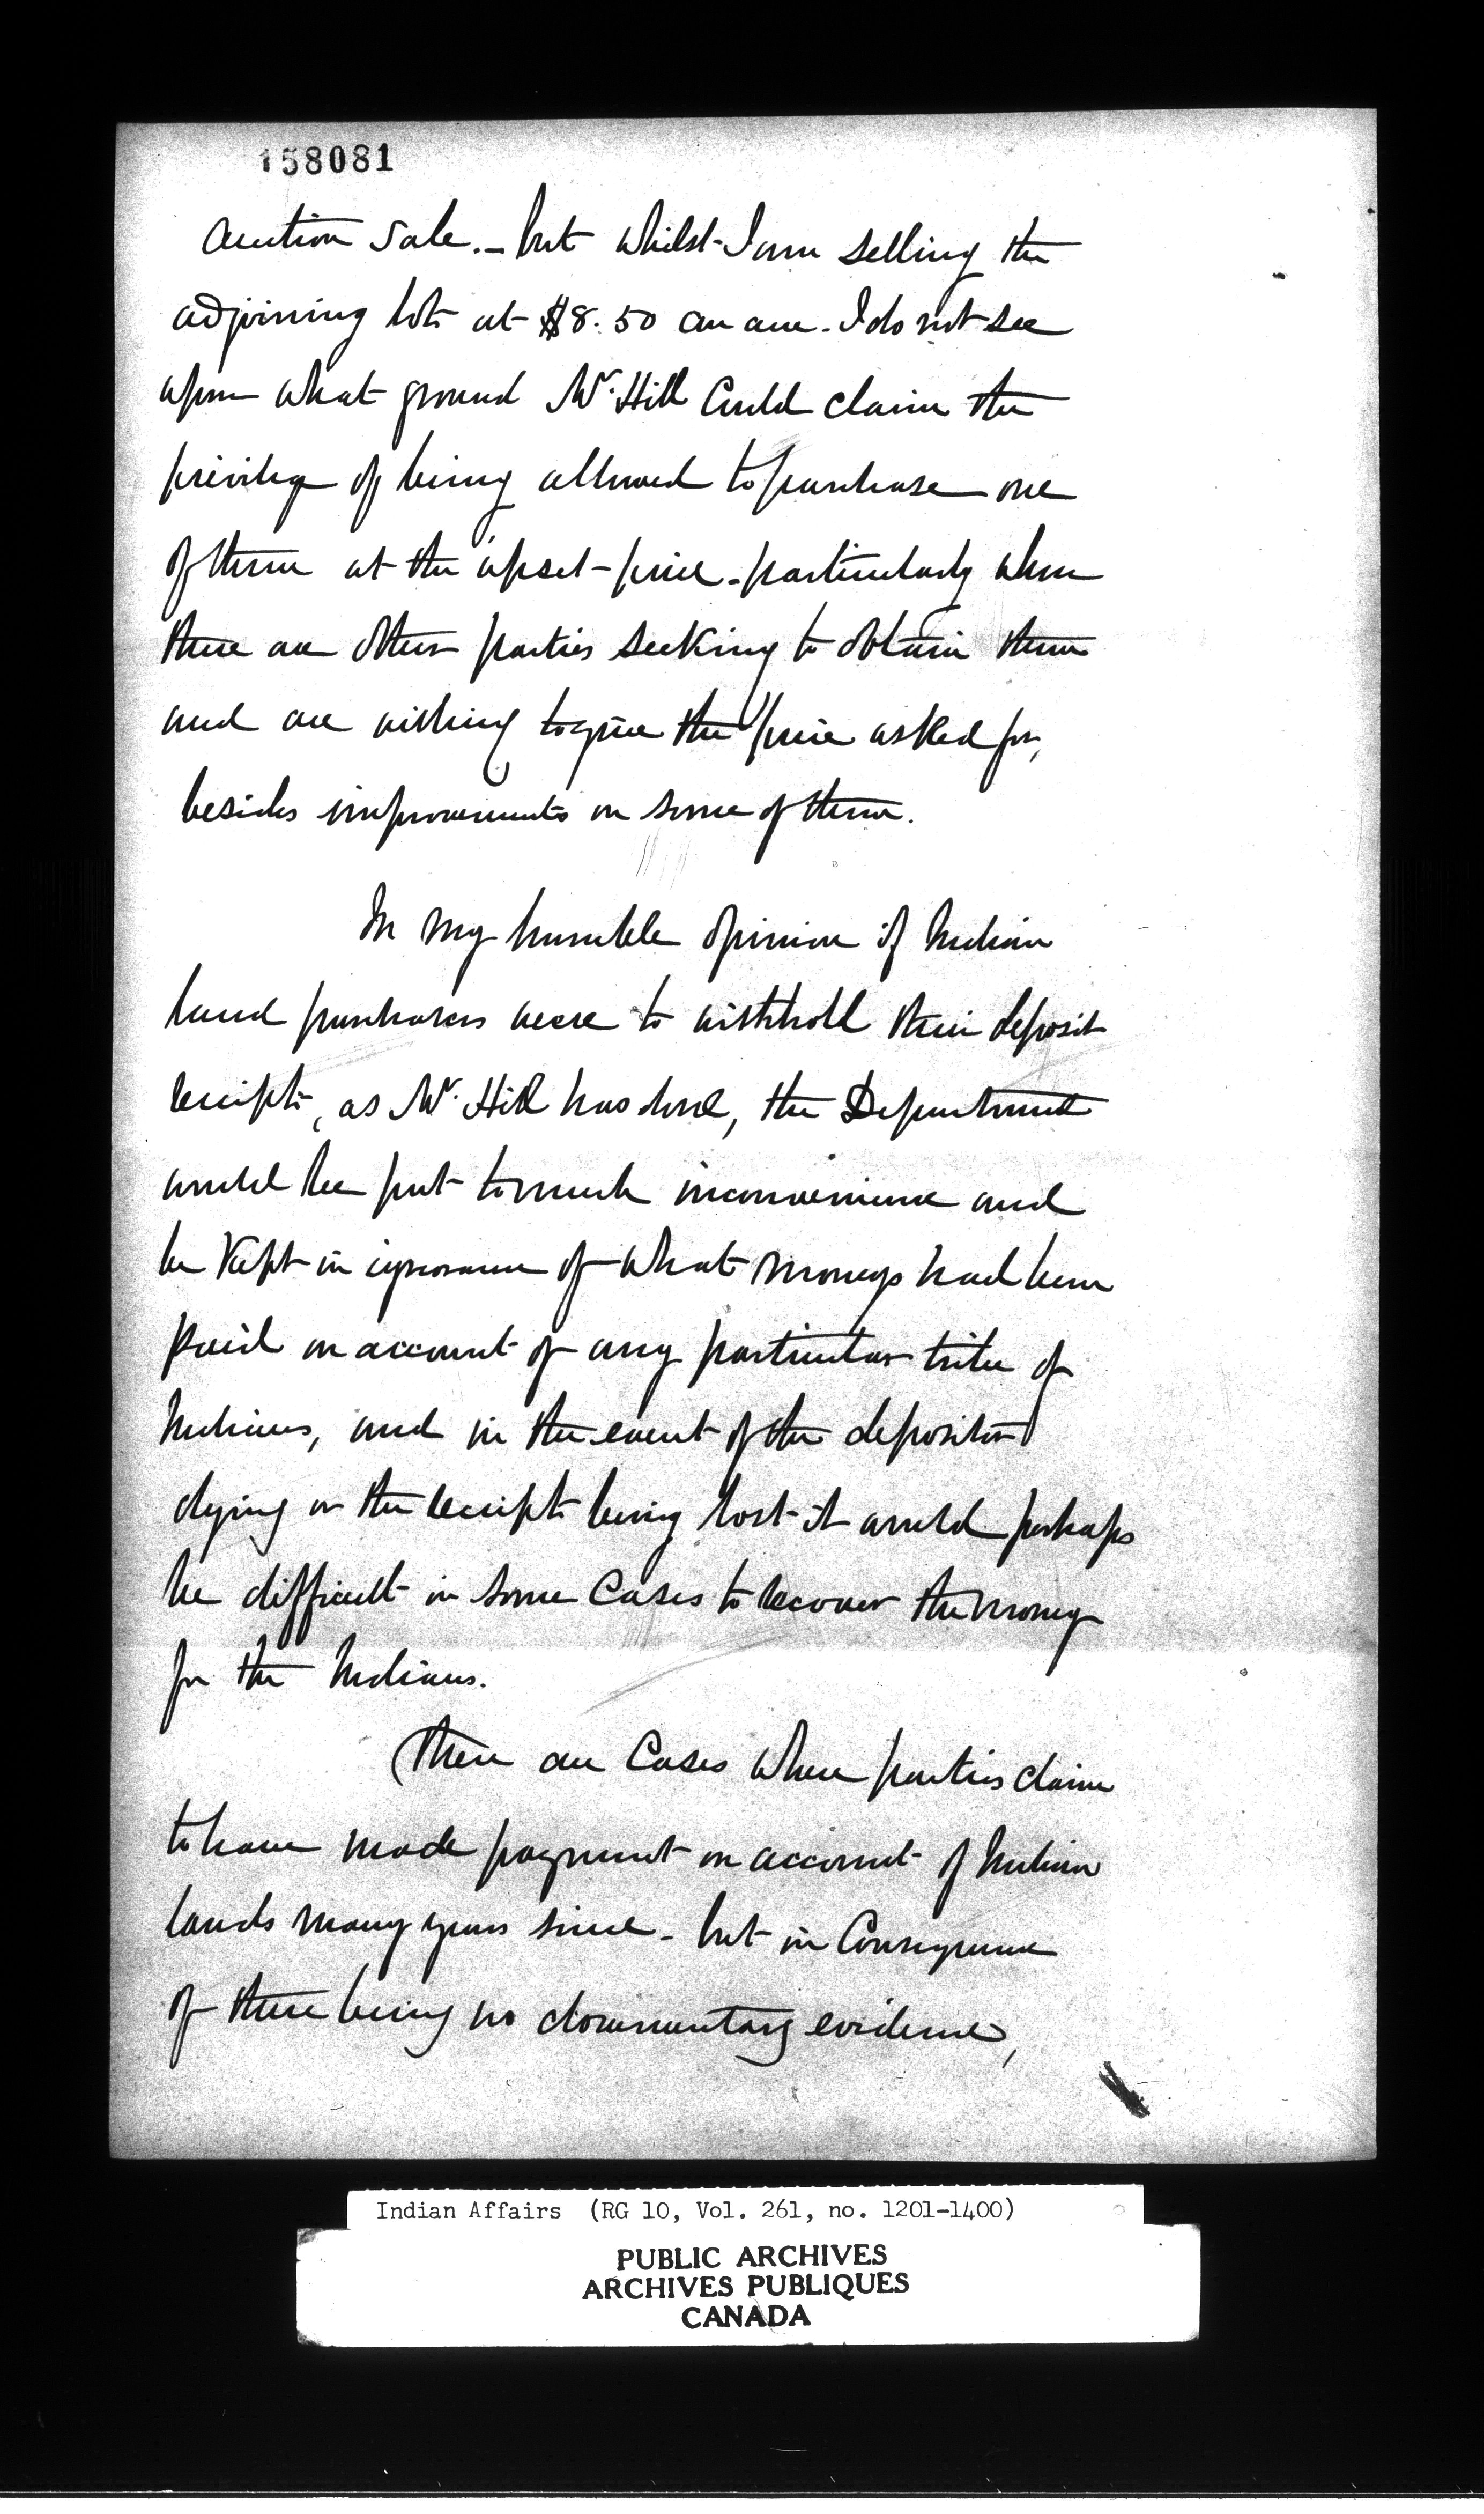 158081
Auction Sale. - but whilst I am selling the
adjoining lots at $8.50 an acre. I do not see
upon what ground Mr. Hill could claim the
privilege of being allowed to purchase one
of them at the upset - price - particularly when
there are other parties seeking to obtain them
and are willing to give the price asked for,
besides improvements on some of them.
In my humble opinion if Indian
land purchasers were to withhold their deposit
receipts, as Mr. Hill has done, the Department
would be put to much inconvenience and
be kept in ignorance of what moneys had been
paid on account of any particular tribe of
Indians, and in the event of the depositor
dying or the receipt being lost it would perhaps
be difficult in some Cases to recover the money
for the Indians.
There are Cases where parties claim
to have made payment on account of Indian
lands many years since - but in Consequence
of there being no documentary evidence,
Indian Affairs (RG 10, Vol. 261, no. 1201-1400)
PUBLIC ARCHIVES
ARCHIVES PUBLIQUES
CANADA